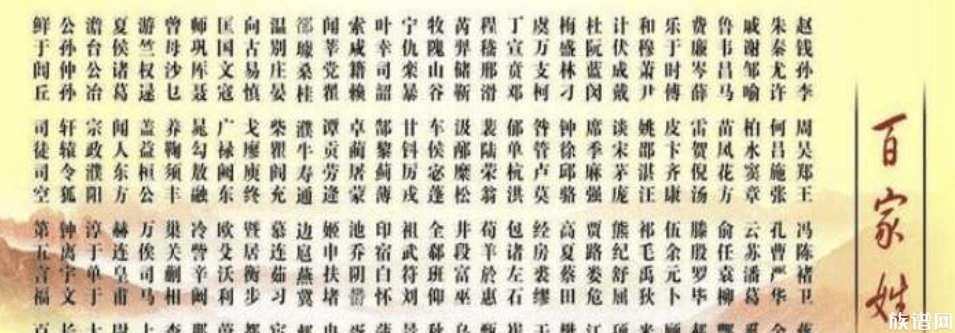 百家姓
赵钱孙李 周吴郑王 冯陈褚卫
朱秦尤许 何吕施张 孔曹严华
戚谢邹喻 柏水窦章 云苏潘葛
鲁韦昌马 苗凤花方 俞任袁柳
费廉岑薛 雷贺倪汤 滕殷罗毕
乐于时傅 皮卞齐康 伍余元卜
和穆萧尹 姚邵湛汪 祁毛禹狄
计伏成戴 谈宋茅庞 熊纪舒屈
杜阮蓝闵 席季麻强 贾路娄危
梅盛林刁 钟徐邱骆 高夏蔡田
虞万支柯 昝管卢莫 经房裘缪
丁宣贲邓 郁单杭洪 包诸左石
程嵇邢滑 裴陆荣翁 荀羊於惠
芮羿储靳 汲邴糜松 井段富巫
牧隗山谷 车侯宓蓬 全郗班仰
宁仇栾暴 甘钭厉戎 祖武符刘
叶幸司韶 郜黎蓟薄 印宿白怀
索咸籍赖 卓蔺屠蒙 池乔阴鬱
闻莘党翟 谭贡劳逄 姬申扶堵
璩桑桂 濮牛寿通 边扈燕冀
温别庄晏 柴瞿阎充 慕连茹习
向古易慎 戈廖庾终 暨居衡步
匡国文寇 广禄阙东 欧殳沃利
师巩厍聂 晁勾敖融 冷訾辛阚
曾毋沙乜 养鞠须丰 巢关蒯相
游竺权逯 盖益桓公 万俟司马
夏侯诸葛 闻人东方 赫连皇甫
澹台公冶 宗政濮阳 淳于单于
公孙仲孙 轩辕令狐 钟离宇文
鲜于闾丘 司徒司空 第五言福
族谱网